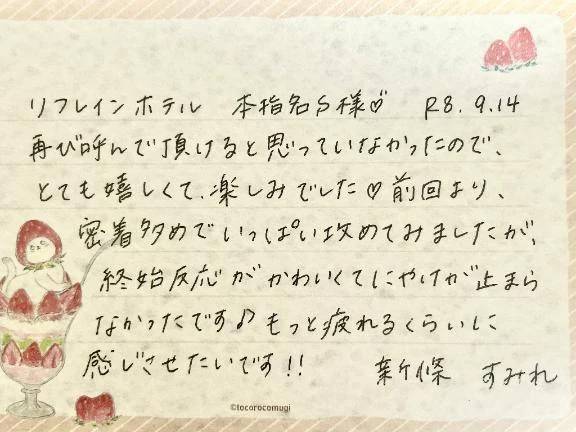 リフレインホテル 本指名S様♡ R8.9.14
再び呼んで頂けると思っていなかったので、
とても嬉しくて、楽しみでした♡前回より、
密着多めでいっぱい攻めてみましたが、
終始反応がかわいくてにやけが止まら
なかったです♪もっと疲れるくらいに
感じさせたいです!!
新條 すみれ
©tocorocomugi